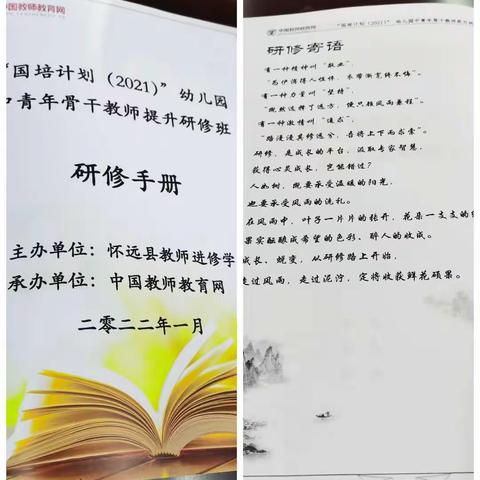 中国教师教育网
“国培计划（2021）”幼儿园
中青年骨干教师提升研修班
研修手册
主办单位：怀远县教师进修学
承办单位：中国教师教育网
二零二二年一月
中国教师教育网
“国培计划（2021）”幼儿园中青年骨干教师
研修寄语
有一种精神叫“敬业”，
“为伊消得人憔悴，衣带渐宽终不悔”。
有一种力量叫“坚持”，
“既然选择了远方，便只顾风雨兼程”。
有一种激情叫“追求”，
“路漫漫其修远兮，吾将上下而求索”。
研修，是成长的平台，汲取专家智慧，
获得心灵成长，岂能错过？
人如树，既要承受温暖的阳光，
也要承受风雨的洗礼。
在风雨中，叶子一片片的张开，花朵一支支的
果实酝酿成希望的色彩、醉人的收成。
成长、蜕变，从研修路上开始，
走过风雨，走过泥泞，定将收获鲜花硕果。